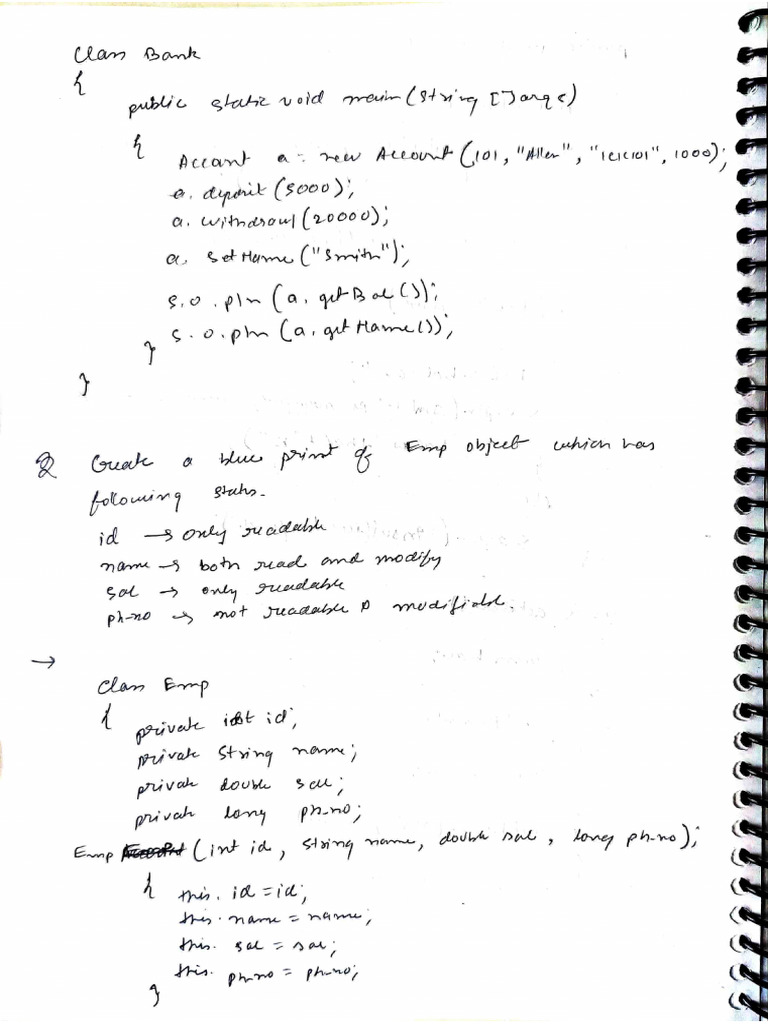 Class Bank
{
public static void main(String []args)
{
Account a = new Account(101, "Allen", "1C1C101", 1000);
a. deposit (5000);
a. withdrawl (20000);
a. setName ("Smith");
S.O.pln (a. getBal ());
S.O.pln (a. getName());
}
}
Q Create a blue print of Emp object which has
following states.
id → only readable
name → both read and modify
sal → only readable
ph-no → not readable & modifiable.
→
Class Emp
{ private int id;
private String name;
private double sal;
private long ph-no;
Emp (int id, String name, double sal, long ph-no);
{ this. id = id;
this. name = name;
this. sal = sal;
this. ph-no = ph-no;
}